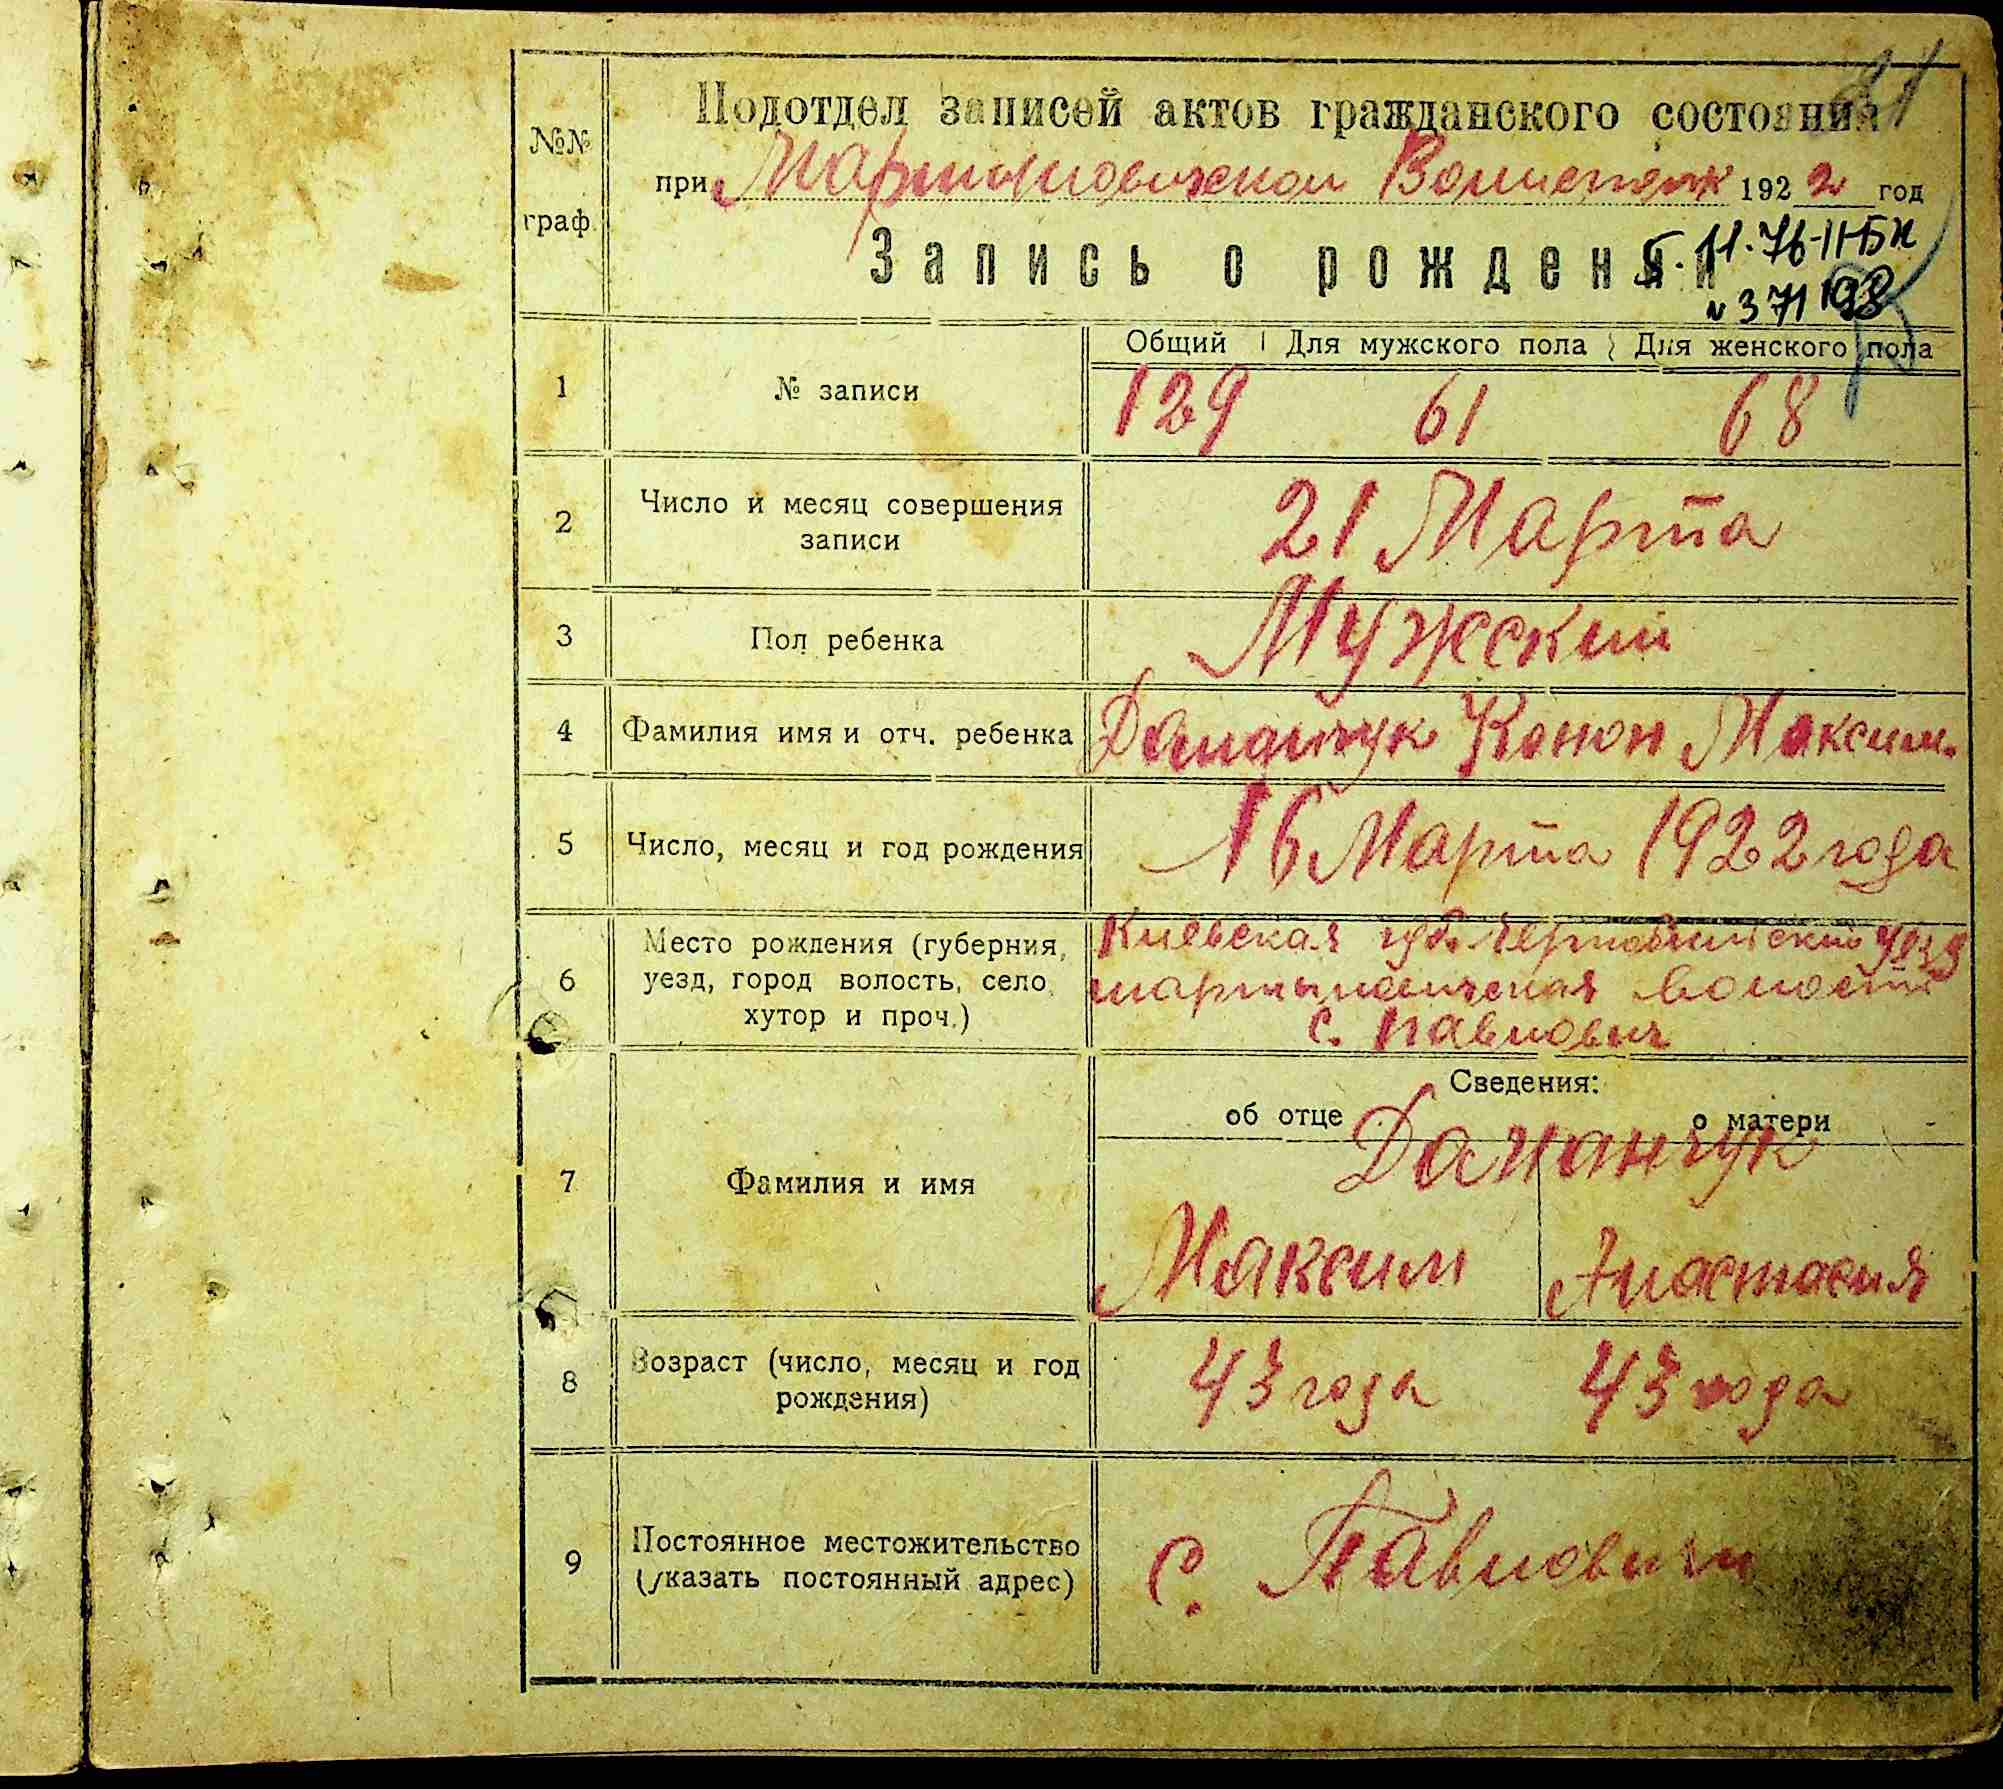 Подотдел записей актов гражданского состояния
№№ граф.
при Мартыновичском 1922 год
Запись о рождении
11.76
№ 371
Общий Для мужского пола Для женского пола
1 № записи 129 61 68
2 Число и месяц совершения записи 21 Марта
3 Пол ребенка Мужский
4 Фамилия имя и отч. ребенка Даманчук Конон Максим.
5 Число, месяц и год рождения 16 Марта 1922 года
6 Место рождения (губерния, Киевская губ. Чернобильский уезд
уезд, город волость, село, мартыновичская волость
хутор и проч.) с. Павлович
Сведения:
об отце о матери
Даманчук
7 Фамилия и имя
Максим Анастасия
8 Возраст (число, месяц и год рождения) 43 года 43 года
9 Постоянное местожительство
(указать постоянный адрес) с. Павловичи